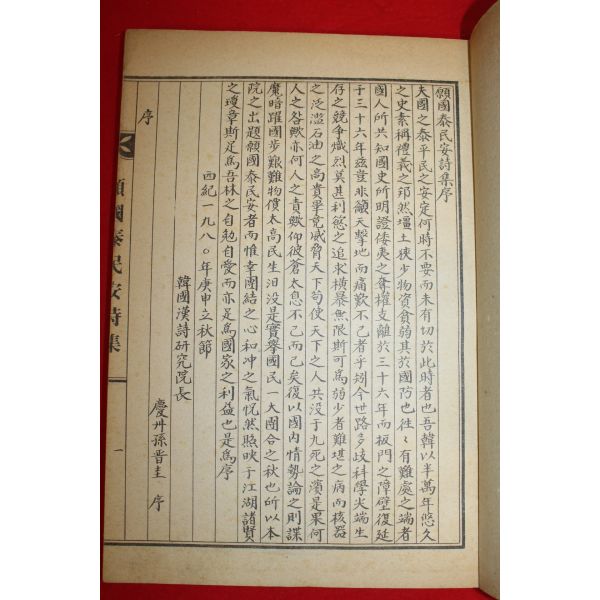 願國泰民安詩集序
夫國之泰平民之安定何時不要而未有切於此時者也吾韓以半萬年悠久
之史素稱禮義之邦然壃土狹少物資貧弱其於國防也往〻有難處之端者
國人所共知國史所明證倭夷之奪權支離於三十六年而板門之障壁復延
于三十六年玆豈非籲天擊地而痛歎不已者乎矧今世路多歧科學尖端生
存之競爭熾烈莫甚利慾之追求橫暴無限斯可爲弱少者難堪之病而核器
之泛濫石油之高貴畢竟威脅天下苟使天下之人共没于九死之濱是果何
人之咎歟亦何人之責歟仰彼蒼太息不已而已矣復以國內情勢論之則諜
魔暗躍國步艱難物價太高民生汨没是實擧國民一大團合之秋也所以本
院之出題願國泰民安者而惟幸團結之心和冲之氣怳然照映于江湖諸賢
之瓊章斯足爲吾林之自勉自愛而亦足爲國家之利益也是爲序
西紀一九八〇年庚申之秋節
韓國漢詩硏究院長
慶州孫晋圭 序
序
願國泰民安詩集
一